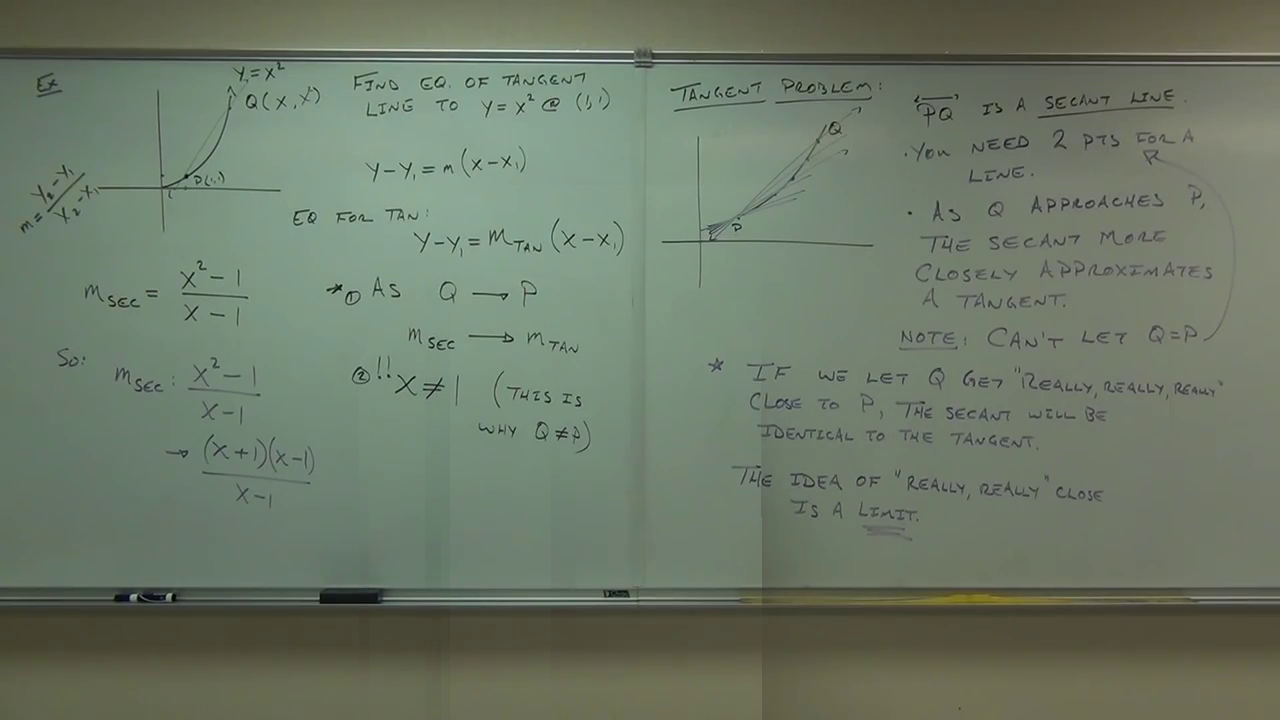 Ex
Y=X²
Q(X, X²)
P(1,1)
m = Y₂-Y₁ / X₂-X₁
m_SEC = X²-1 / X-1
So:
m_SEC: X²-1 / X-1
→ (X+1)(X-1) / X-1
FIND EQ. OF TANGENT
LINE TO Y=X² @ (1,1)
Y-Y₁=m(X-X₁)
EQ FOR TAN:
Y-Y₁=m_TAN(X-X₁)
* ① AS Q → P
m_SEC → m_TAN
② !! X≠1 (THIS IS
WHY Q≠P)
TANGENT PROBLEM:
Q
P
PQ IS A SECANT LINE.
• YOU NEED 2 PTS FOR A
LINE.
• AS Q APPROACHES P,
THE SECANT MORE
CLOSELY APPROXIMATES
A TANGENT.
NOTE: CAN'T LET Q=P
* IF WE LET Q GET "REALLY, REALLY, REALLY"
CLOSE TO P, THE SECANT WILL BE
IDENTICAL TO THE TANGENT.
THE IDEA OF "REALLY, REALLY" CLOSE
IS A LIMIT.